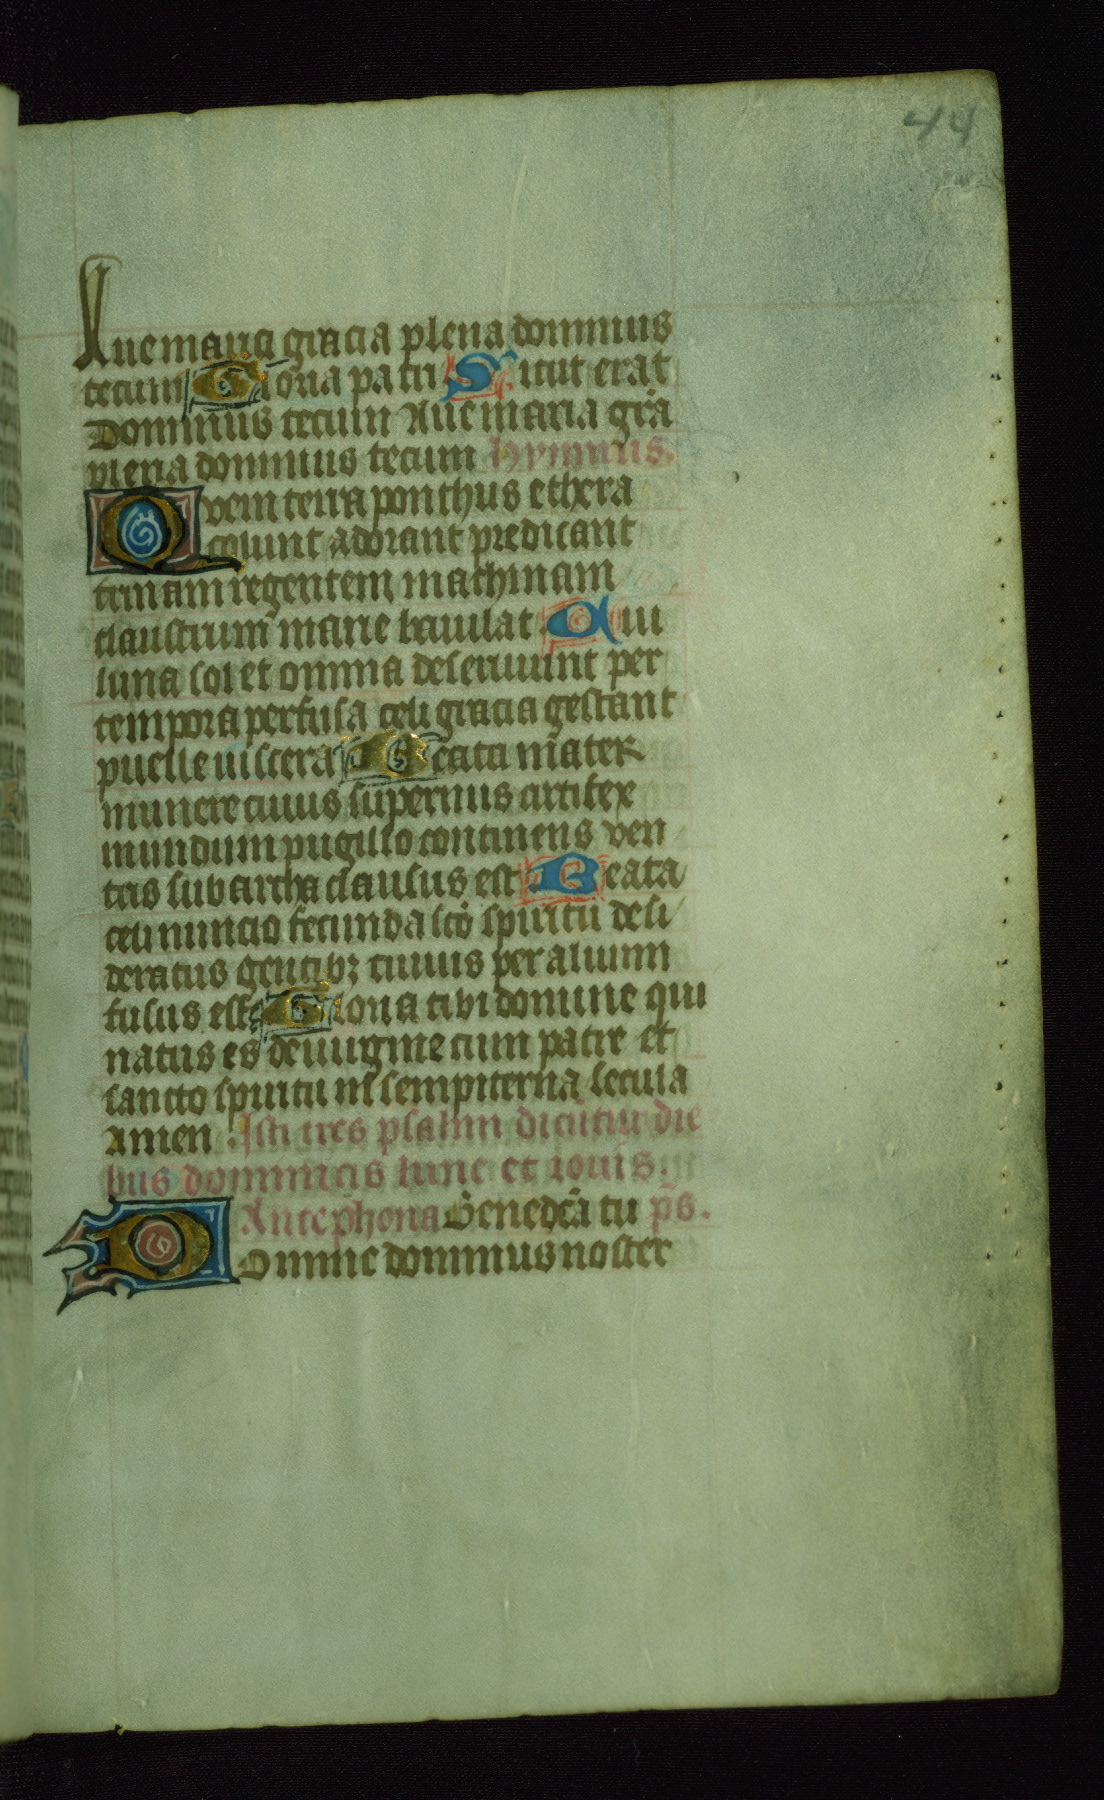 44
Aue maria gracia plena dominus
tecum Gloria patri Sicut erat
Dominus tecum Aue maria gr̃a
plena dominus tecum Hymnus.
Quem terra ponthus ethera
colunt adorant predicant
trinam regentem machinam
claustrum marie baiulat Cui
luna sol et omnia deseruiunt per
tempora perfusa celi gracia gestant
puelle uiscera Beata mater
munere cuius supernus artifex
mundum pugillo continens ven
tris sub archa clausus est Beata
celi nuncio fecunda sc̃o spiritu desi
deratus gentibꝫ cuius per aluum
fusus est Gloria tibi domine qui
natus es de uirgine cum patre et
sancto spiritu in sempiterna secula
Amen. Isti tres psalmi dicũtur die
bus dominicis lune et iouis.
Antephona Benedc̃a tu ps.
Domine dominus noster